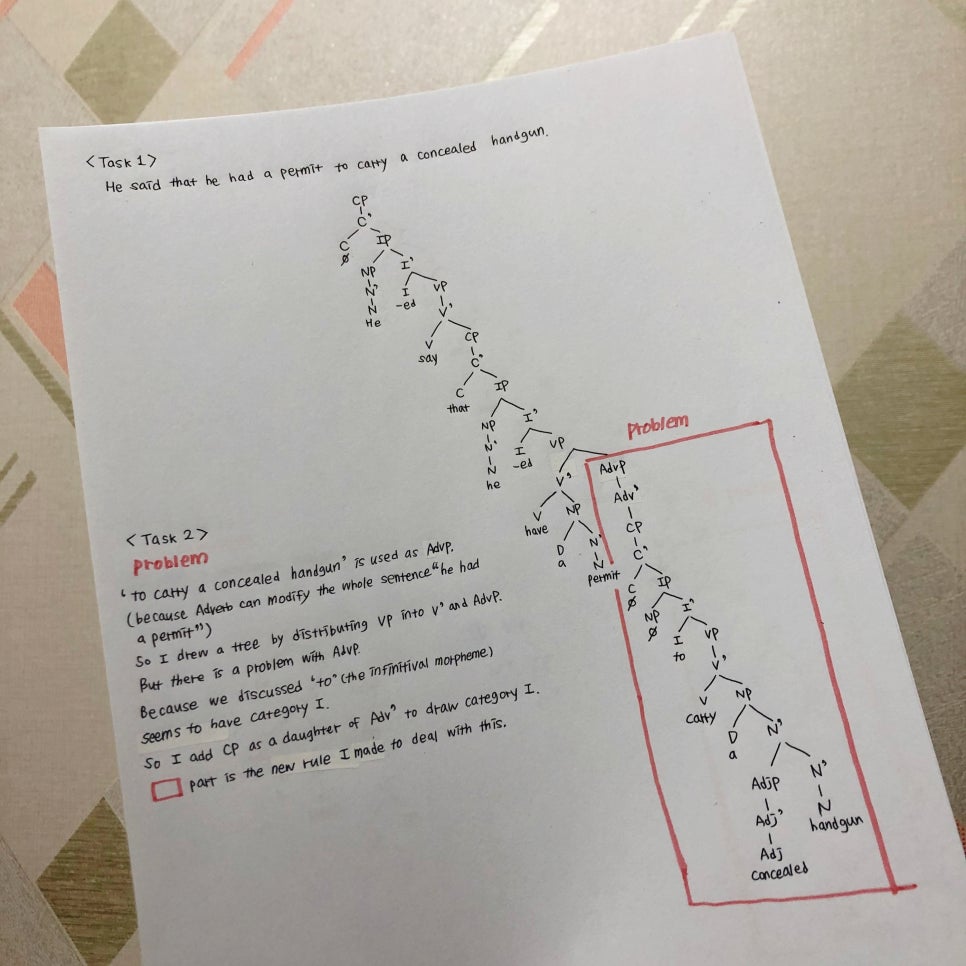 <Task 1>
He said that he had a permit to carry a concealed handgun.
CP
C'
C IP
∅
NP I'
N' I VP
N -ed V'
He
V CP
say C'
C IP
that
NP I'
N' I VP
N -ed
he
Problem
V' AdvP
V NP Adv'
have
D N' CP
a N C'
permit
C IP
∅
NP I'
∅
I VP
to V'
V NP
carry
D N'
a
AdjP N'
Adj' N
Adj handgun
concealed
<Task 2>
Problem
'to carry a concealed handgun' is used as AdvP.
(because Adverb can modify the whole sentence "he had
a permit")
So I drew a tree by distributing VP into V' and AdvP.
But there is a problem with AdvP.
Because we discussed "to" (the infinitival morpheme)
seems to have category I.
So I add CP as a daughter of Adv' to draw category I.
part is the new rule I made to deal with this.